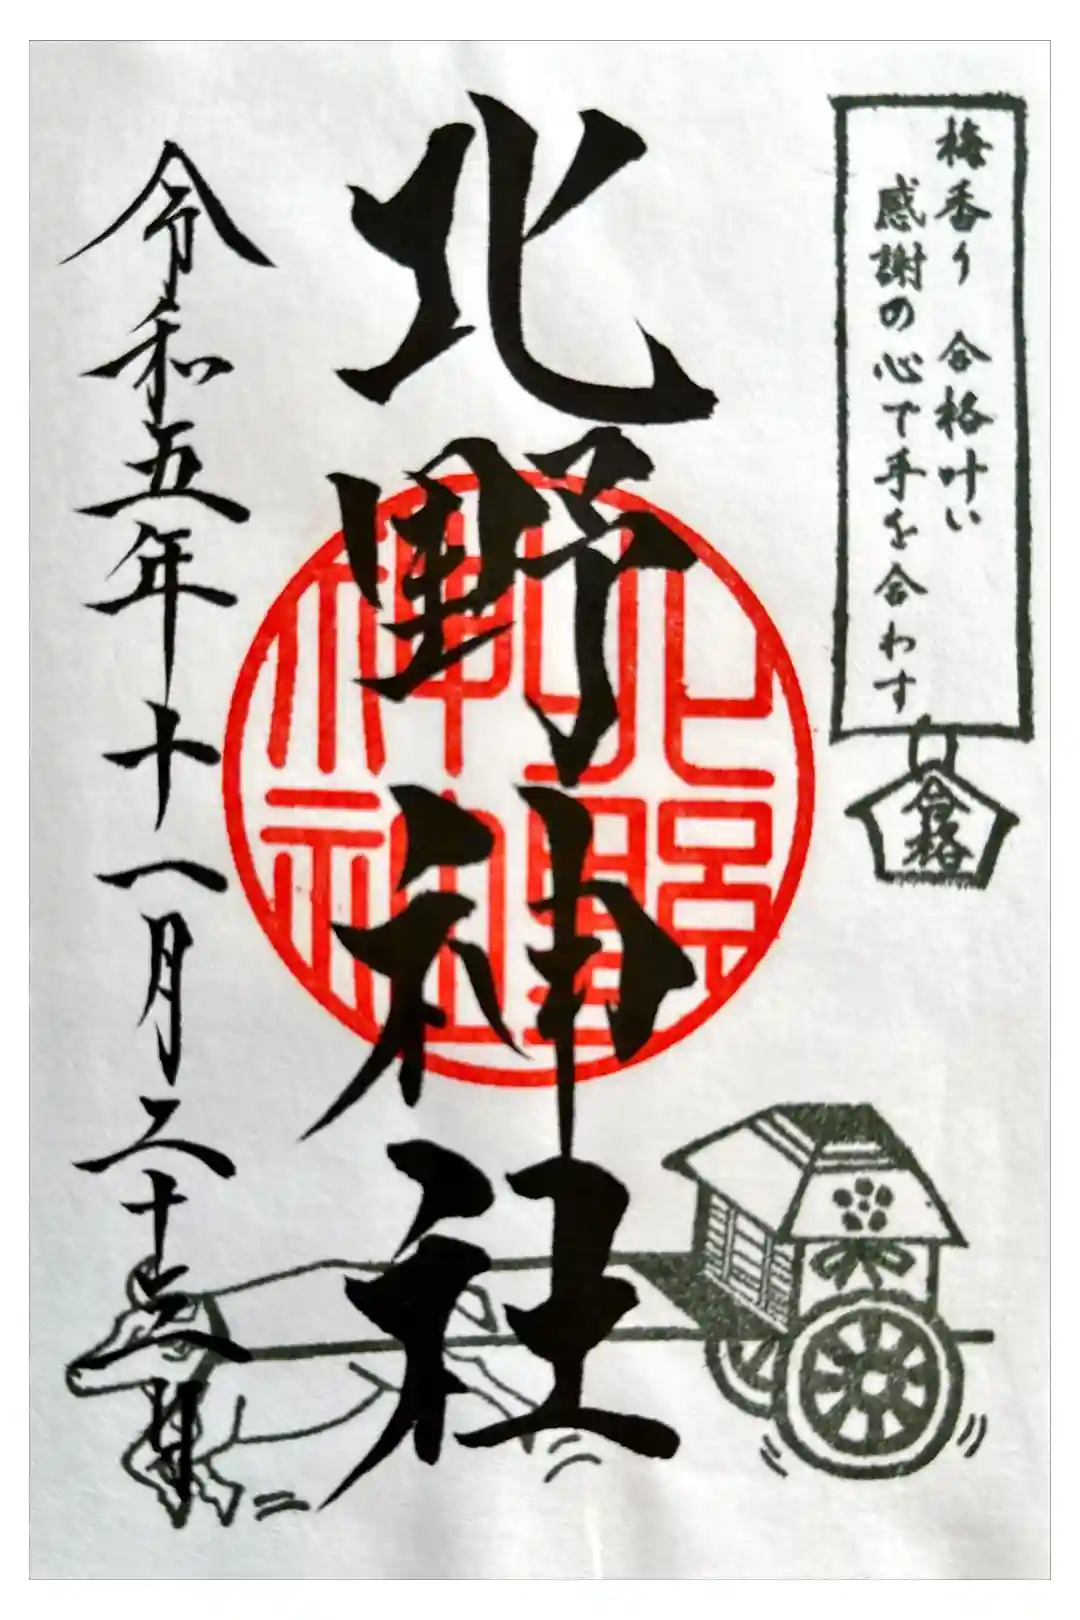 梅香り 合格叶い
感謝の心で手を合わす
合格
北野神社
北野
神社
令和五年十一月二十三日